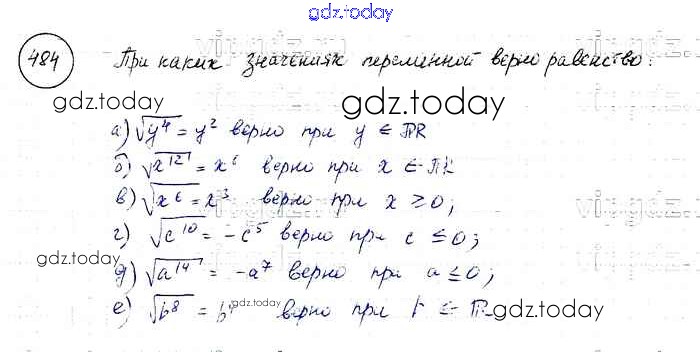 gdz.today
484 При каких значениях переменной верно равенство:
gdz.today gdz.today
а) √y⁴ = y² верно при y ∈ ℝ
б) √x¹² = x⁶ верно при x ∈ ℝ
в) √x⁶ = x³ верно при x ≥ 0;
г) √c¹⁰ = -c⁵ верно при c ≤ 0;
gdz.today gdz.today
д) √a¹⁴ = -a⁷ верно при a ≤ 0;
е) √b⁸ = b⁴ верно при b ∈ ℝ
gdz.today
gdz.today